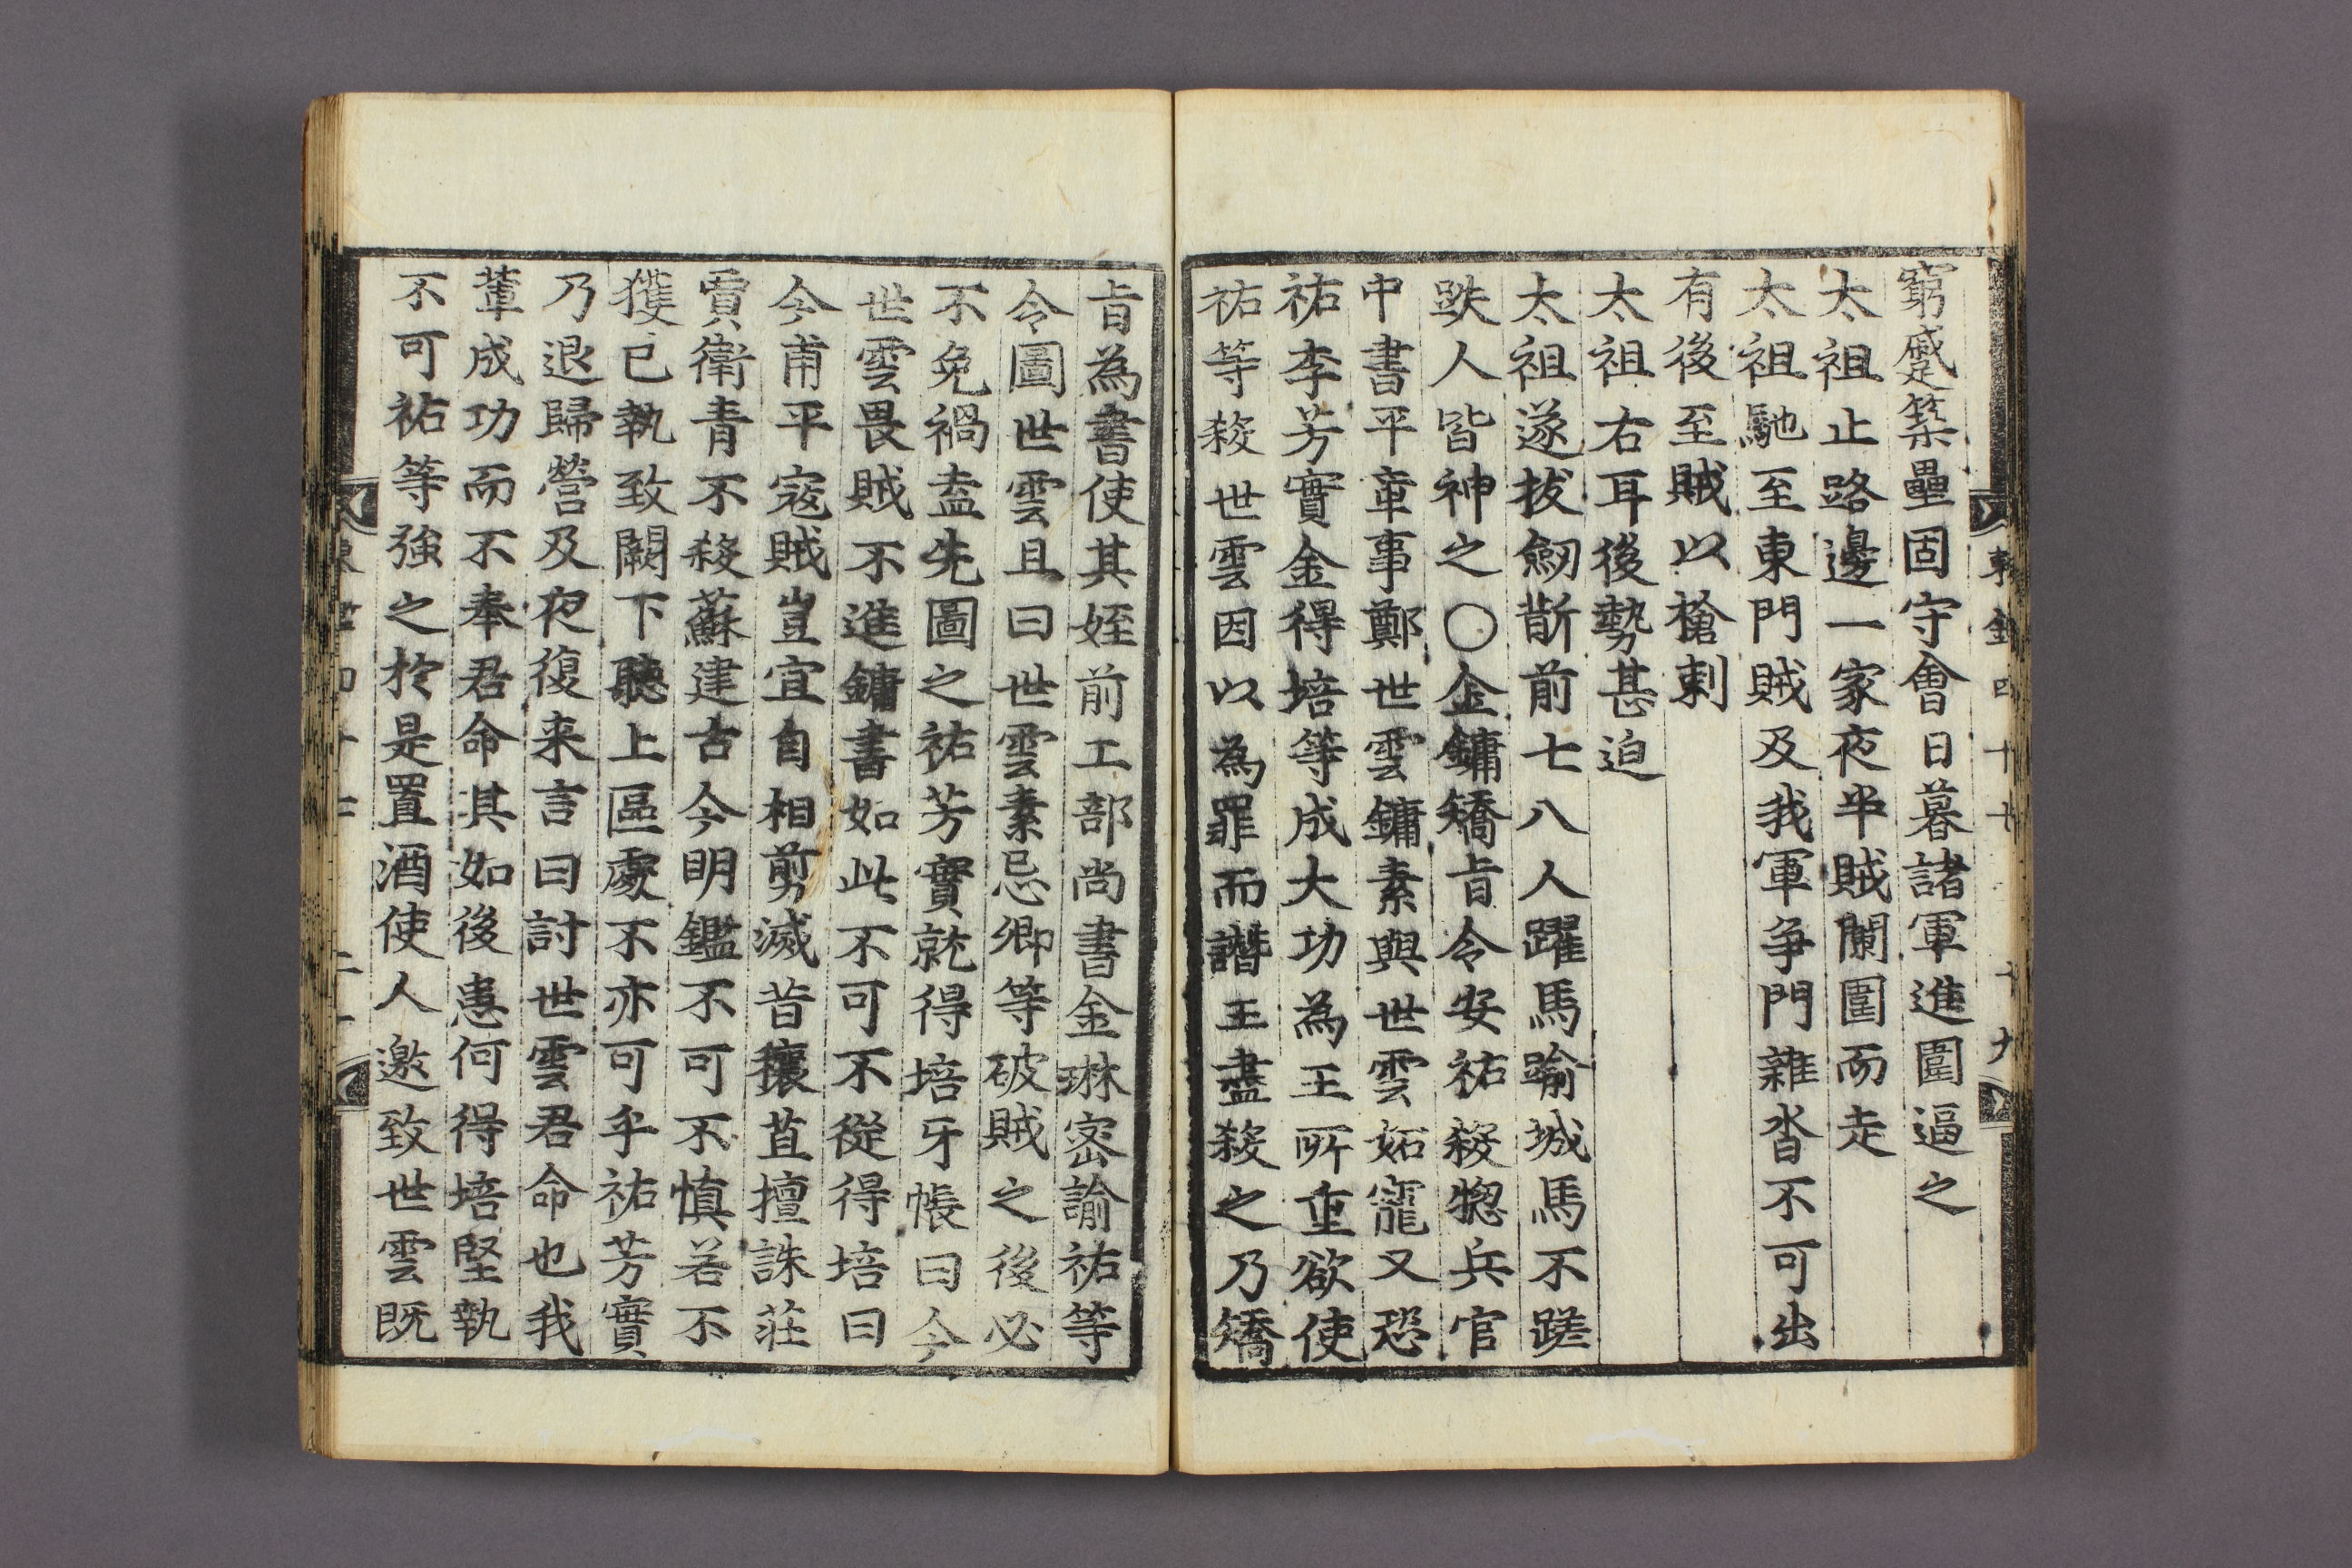 窮蹙築壘固守會日暮諸軍進圍逼之
太祖止路邊一家夜半賊闌圍而走
太祖馳至東門賊及我軍争門雜沓不可出
有後至賊以槍刺
太祖右耳後勢甚迫
太祖遂拔劒斮前七八人躍馬踰城馬不蹉
跌人皆神之〇金鏞矯旨令安祐殺揔兵官
中書平章事鄭世雲鏞素與世雲妬寵又恐
祐李芳實金得培等成大功為王所重欲使
祐等殺世雲因以為罪而譖王盡殺之乃矯
旨為書使其姪前工部尚書金琳密諭祐等
令圖世雲且曰世雲素忌卿等破賊之後必
不免禍盍先圖之祐芳實就得培牙帳曰今
世雲畏賊不進鏞書如此不可不從得培曰
今甫平寇賊豈宜自相剪滅昔穰苴擅誅莊
賈衛青不殺蘇建古今明鑑不可不慎若不
獲已執致闕下聽上區處不亦可乎祐芳實
乃退歸營及夜復来言曰討世雲君命也我
輩成功而不奉君命其如後患何得培堅執
不可祐等強之於是置酒使人邀致世雲既